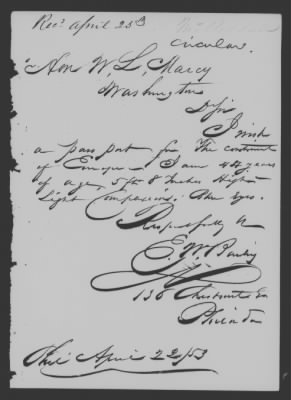 Recd April 25th
circular.
Hon W. L. Marcy
Washington
D Sir
I wish
a pass port for The continent
of Europe - I am 44 years
of age, 5 ft 8 Inches High
Light Complexion. Blue Eyes.
Respectfully Yr
E. W.
136 Chestnut St
Philada
Phil April 22/53